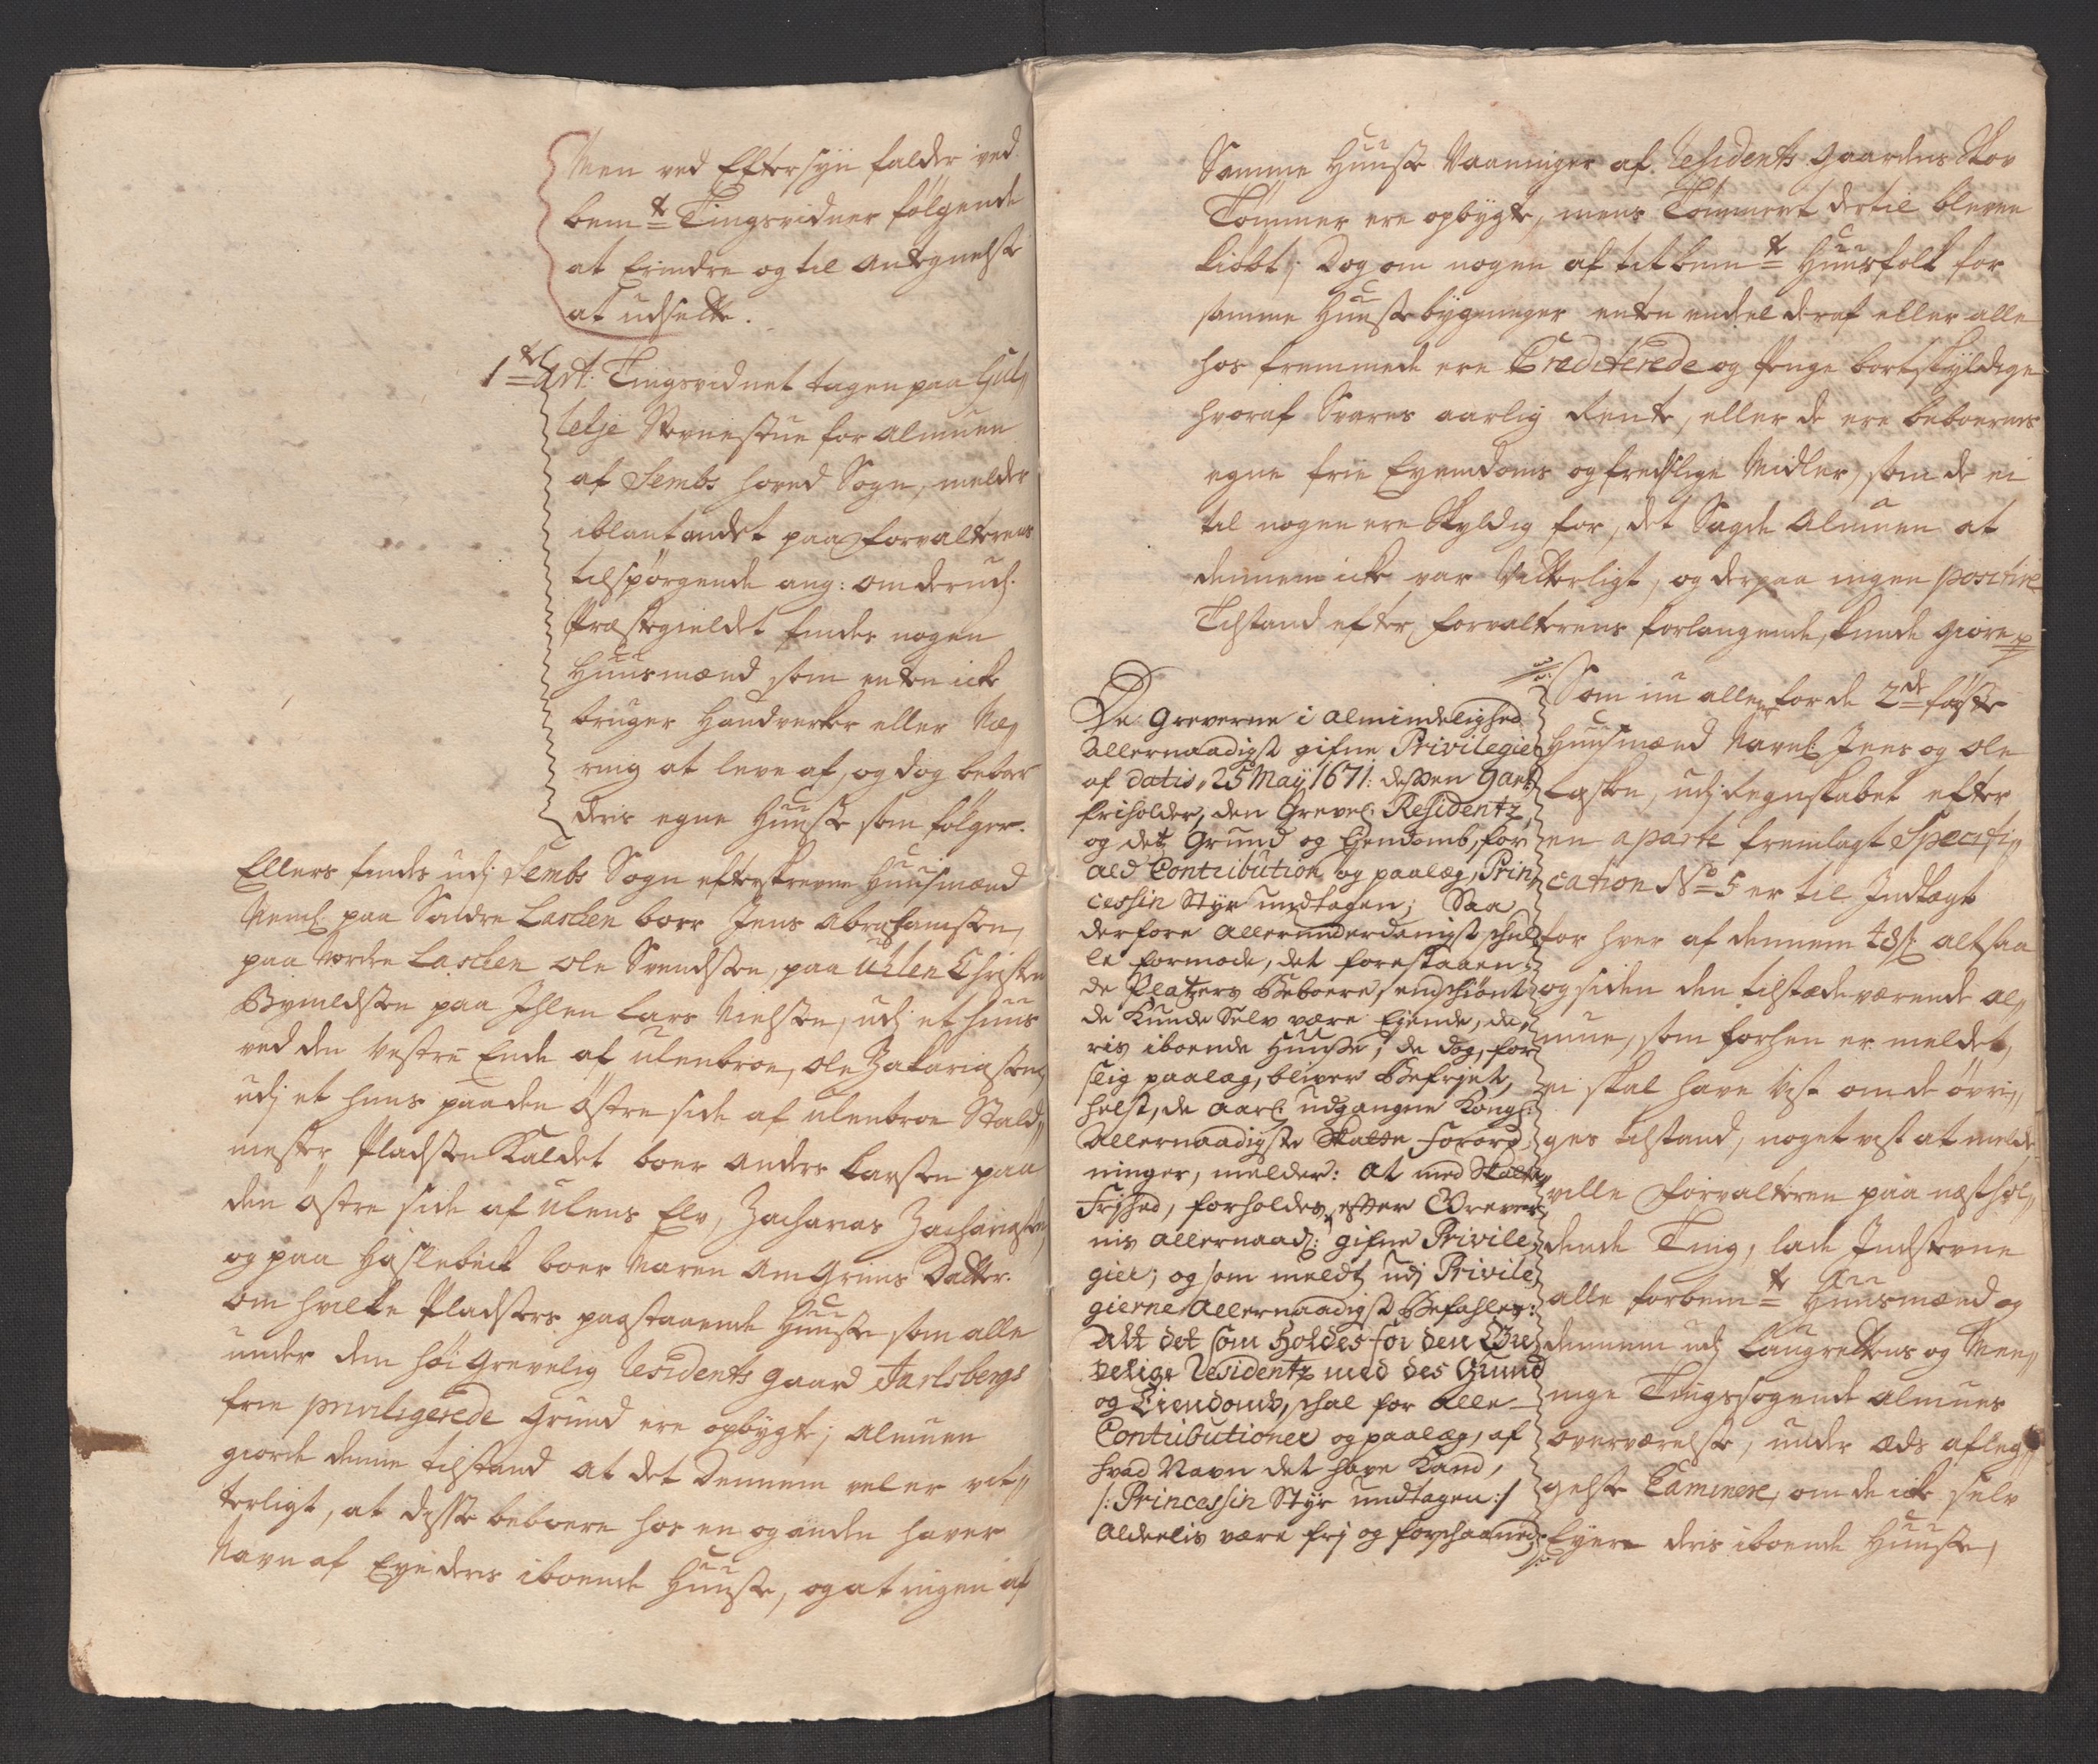 Men ved Eftersyn falder ved
bemte Tingsvidner følgende
at Erindre og til Antegnelse
at udsette.
1te Art: Tingsvidnet tagen paa Gul„
lelje Stevnestue for Almuen
af Sembs hoved Sogn, melder
iblant andet paa Forvalterens
tilspørgende ang: om der udj
Præstegieldet findes nogen
Huusmænd som enten icke
bruger Handverker eller Næ„
ring at leve af, og dog beboer
deris egne Huusse som følger.
Ellers findes udj Sembs Sogn efterskrevne Huusmænd
Nemlig paa Søndre Laschen boer Jens Abrahamsen,
paa Nordre Laschen Ole Svendsen, paa Uhlen Christen
paa Ihlen Lars Nielsen, udj et huus
ved den Vestre Ende af Ulenbroe, Ole Zakariasen
udj et huus paa den Østre side af Ulenbroe Stald„
mester Pladsen Kaldet boer Anders Larsen paa
den Østre side af Ulens Elv, Zacharias Zachariasen
og paa Haslebeck boer Maren Amgrims Datter.
Om hvilke Pladsers paastaaende Huusse som alle
under den høi Grevelig Residents Gaard Jarlsbergs
frie privilegerede Grund ere opbygt; Almuen
giorde denne tilstand at det Dennem vel er vit„
terligt, at disse beboere hos en og anden haver
Navn af Eye deris iboende Huusse, og at ingen af
Samme Huusse Vaaninger af Residents Gaardens Skov
Tømmer ere opbygte, mens Tømmeret dertil bleven
kiøbt; Dog om nogen af titbemte Huusfolk for
samme Huussebygninger enten endel deraf eller alle
hos fremmede ere Crediterede og Penge bortskyldige
hvoraf Svares aarlig Rente, eller de ere beboernes
egne frie Eyendoms og fredelige Midler, som de ei
til nogen ere Skyldig for, det Sagde Almuen at
dennem icke var Vitterligt, og derpaa ingen positive
Tilstand efter Forvalterens forlangende, kunde giøre
De Greverne i Almindelighed
Allernaadigst gifne Privilegier
af datis, 25 Maij 1671: dessen 9 art:
friholder, den Grevel: Residentz,
og detz Grund og Ejendomb, for
ald Contribution og paalæg, Prin„
cessin Styr undtagen; Saa
derfore Allerunderdanigst, schul„
le formode, det forestaaen„
de Platzers Beboere, endschiønt
de Kunde Selv være Ejende, de„
ris iboende Huusse, de dog, for
slig paalæg, bliver Befrjet,
helst, de Aarl: udgangne Kongl:
Allernaadigste Skatte Forord„
ninger, melder: At med Skatte
Frjhed, forholdes efter Grever„
nis Allernaad: gifne Privile„
gier; og som meldt udj Privile„
gierne Allernaadigst Befahles:
Alt det som Holdes for den Gre„
velige Residentz med des Grund
og Eiendomb, schal for Alle
Contributioner og paalæg, af
hvad Navn det have Kand,
/: Princessin Styr undtagen :/
Aldeelis være frj og forschaaned:
Som nu alleene for de 2de første
Huusmænd Navnl: Jens og Ole
Lasken, udj Regnskabet efter
en aparte fremlagt Specifi„
cation No 5 er til Indtægt
for hver af dennem 48 s: altsaa
og siden den tilstædeværende Al„
mue, som forhen er meldet,
ei skal have Vist om de øvri„
ges tilstand, noget vist at melde
ville Forvalteren paa næsthol„
dende Ting, lade Indstevne
alle forbemte Huusmænd og
dennem udj Laugrettens og Men„
inge Tingssøgende Almues
overværelse, under Eds afleg„
gelse Examinere, om de icke selv
Eyere deris iboende Huusse,